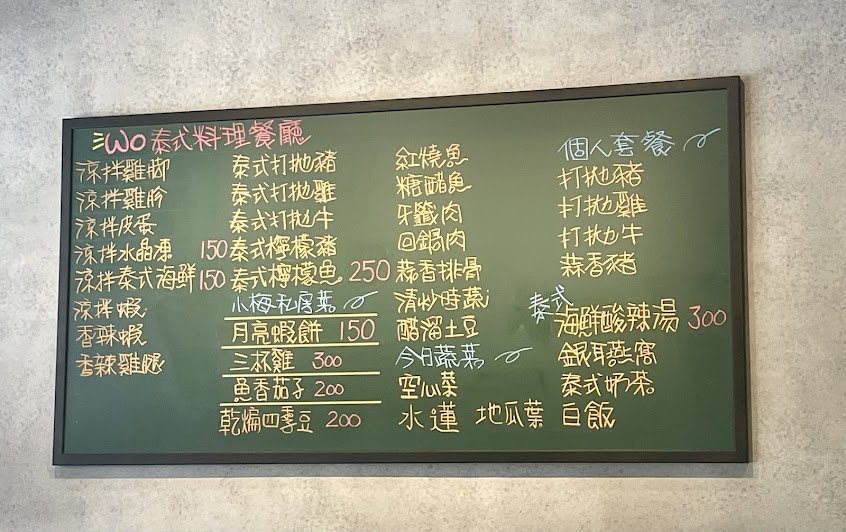 Wo 泰式料理餐廳
涼拌雞腳
涼拌雞胗
涼拌皮蛋
涼拌水晶凍 150
涼拌泰式海鮮 150
涼拌蝦
香辣蝦
香辣雞腿
泰式打拋豬
泰式打拋雞
泰式打拋牛
泰式檸檬豬
泰式檸檬魚 250
小梅私房菜
月亮蝦餅 150
三杯雞 300
魚香茄子 200
乾煸四季豆 200
紅燒魚
糖醋魚
牙籤肉
回鍋肉
蒜香排骨
清炒時蔬
醋溜土豆
今日蔬菜
空心菜
水蓮 地瓜葉
個人套餐
打拋豬
打拋雞
打拋牛
蒜香豬
泰式
海鮮酸辣湯 300
銀耳燕窩
泰式奶茶
白飯